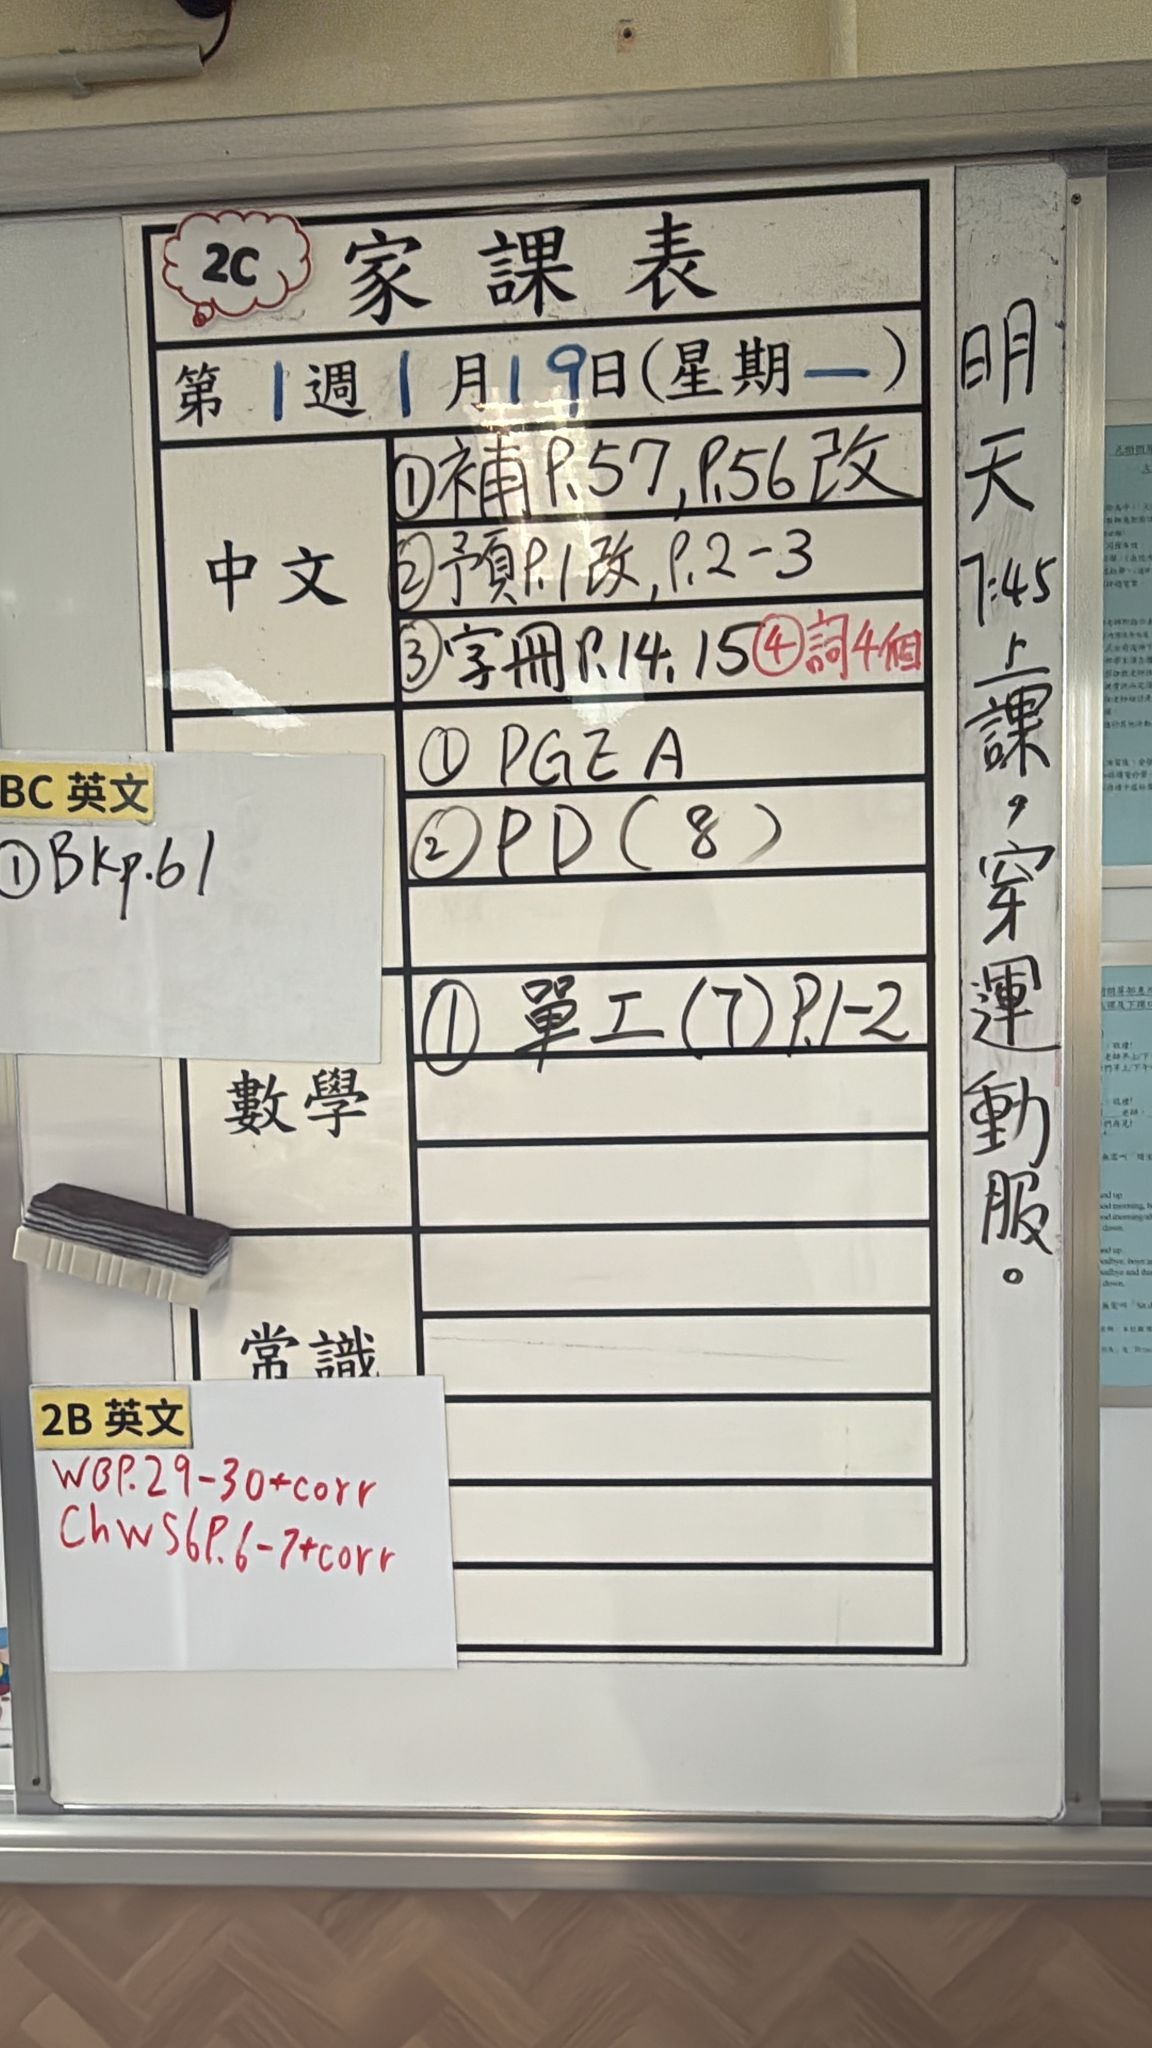 2C 家課表
第1週1月19日(星期一)
中文
①補P.57,P.56改
②予頁P.1改,P.2-3
③字冊P.14.15④詞4個
①PGEA
②PD(8)
BC 英文
①Bkp.61
數學
①單工(7)P.1-2
常識
2B 英文
WBP.29-30+corr
ChWS6P.6-7+corr
明天7:45上課,穿運動服。